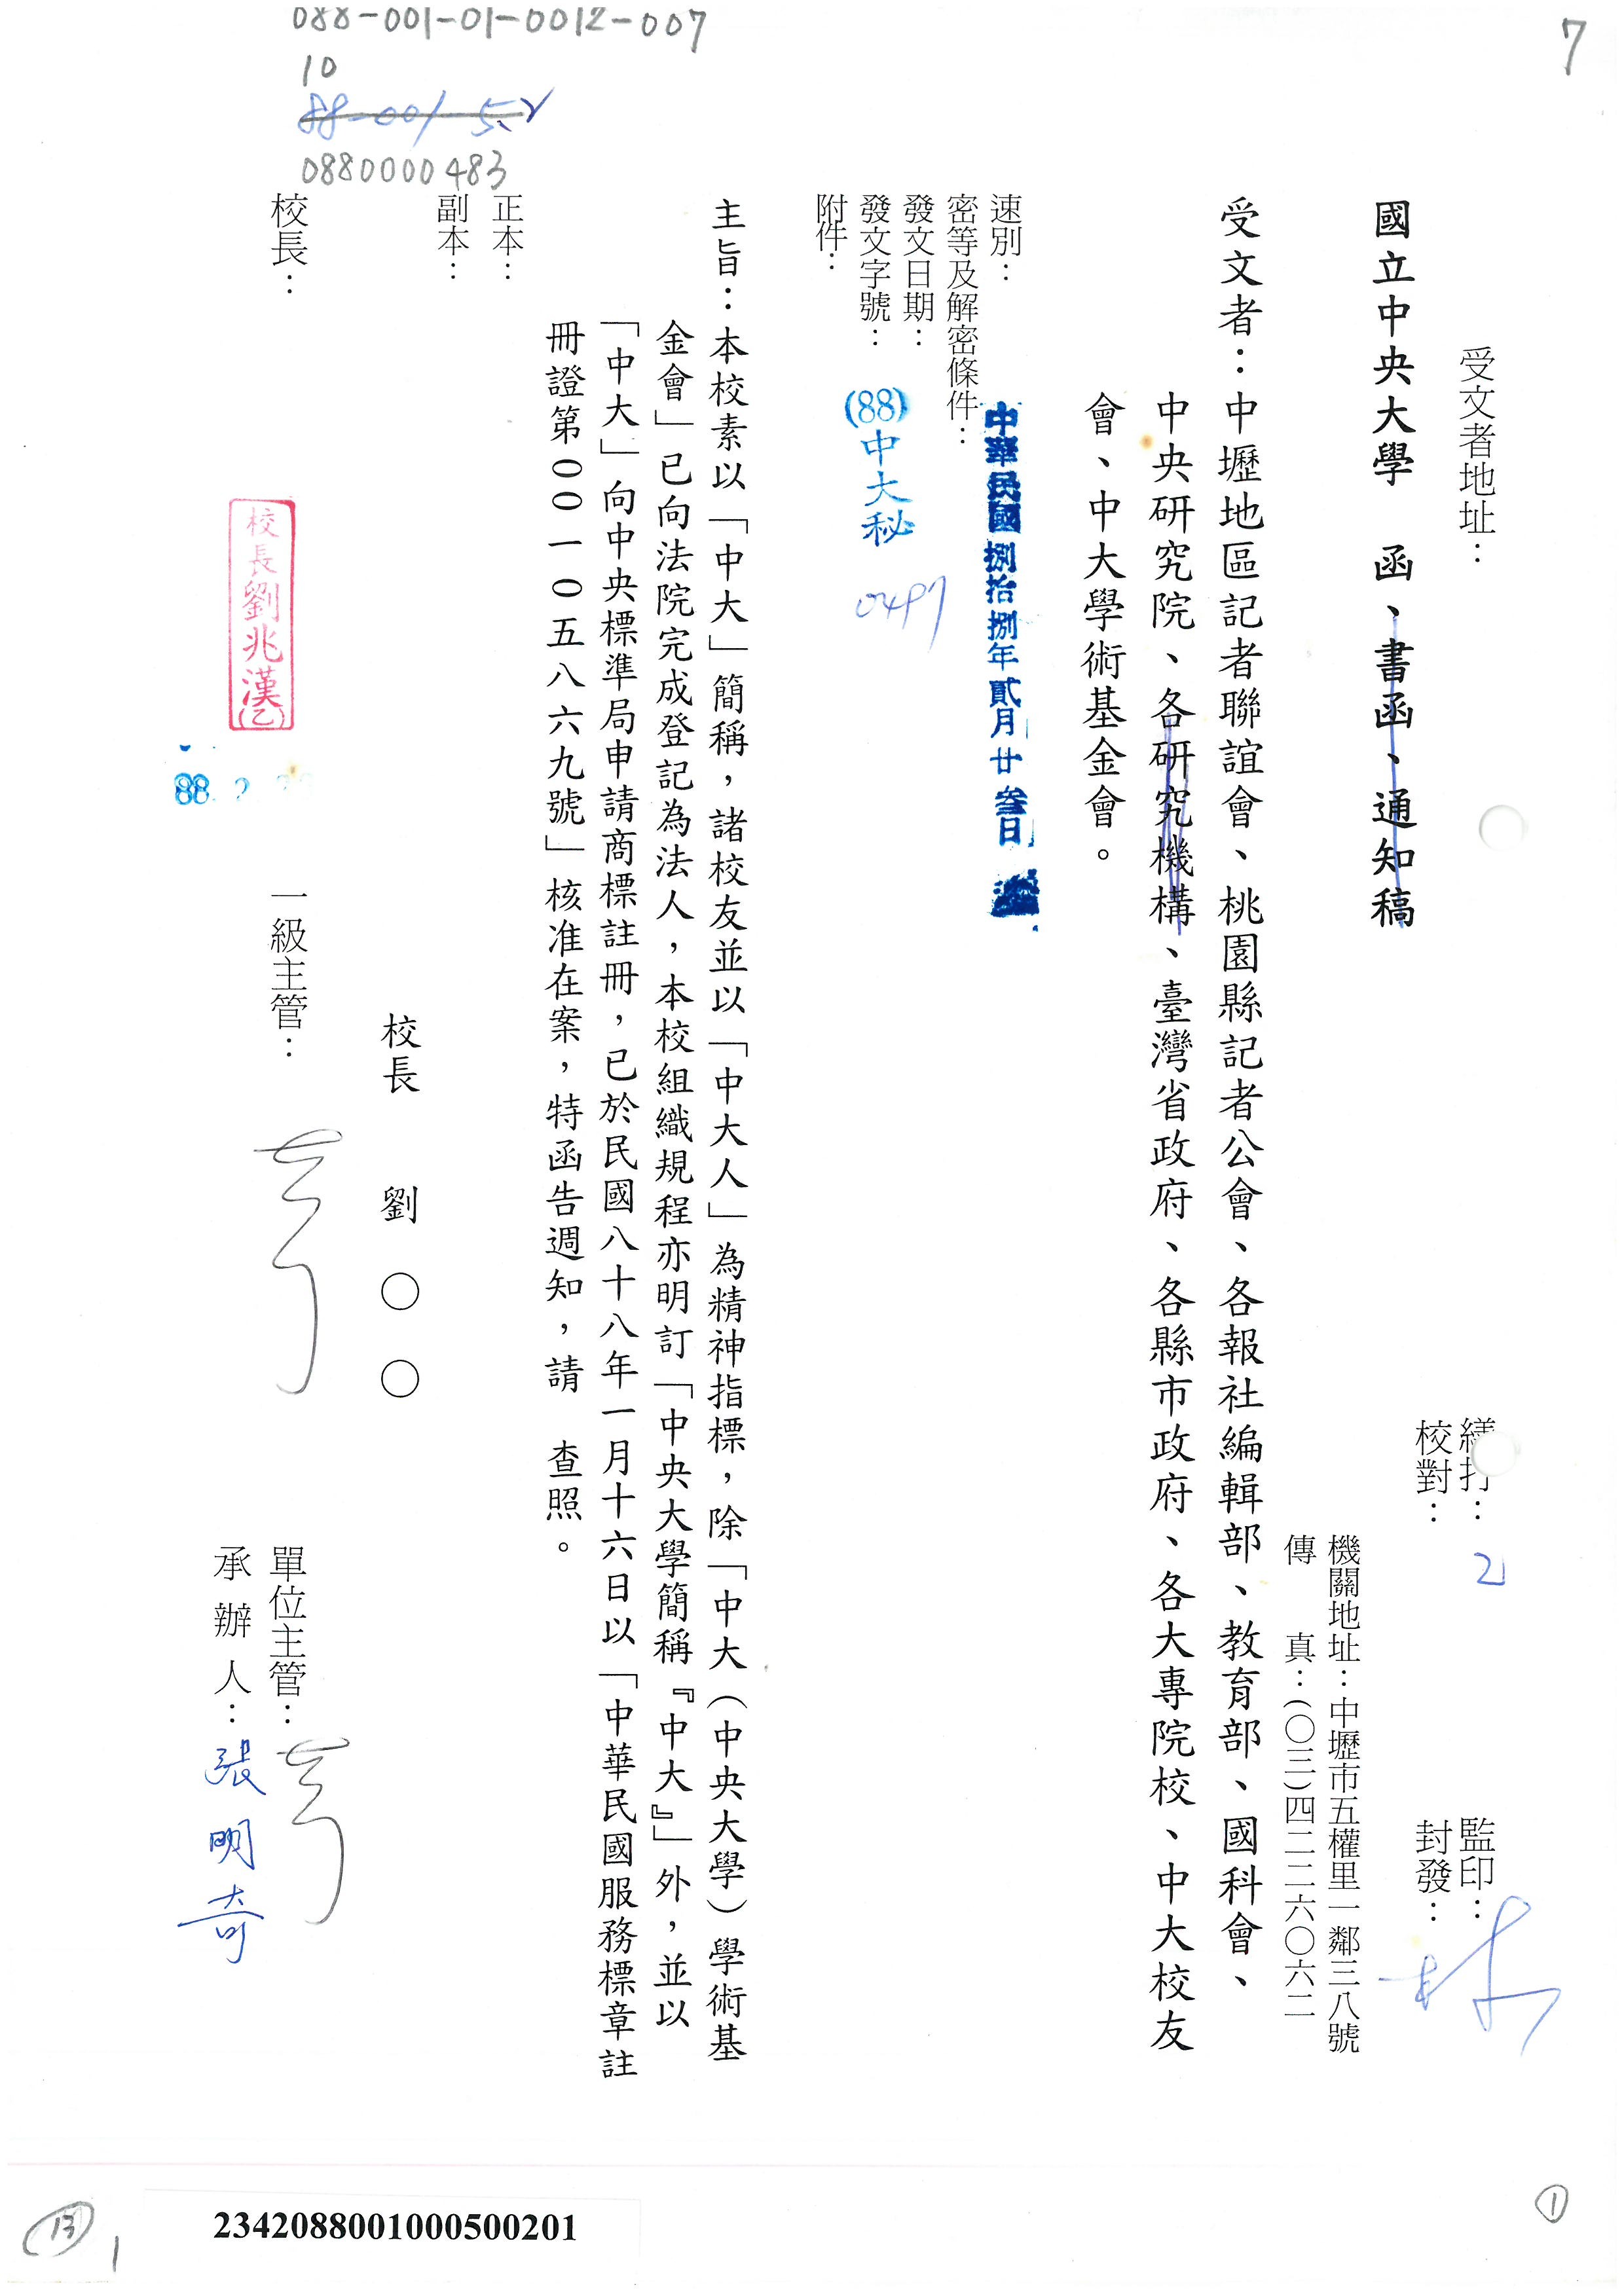 088-001-01-0012-007
10
88-001-5.2
0880000483
7
受文者地址：
繕打：
校對：
監印：
封發：
國立中央大學　函、書函、通知稿
機關地址：中壢市五權里一鄰三八號
傳　　真：(〇三)四二二六〇六二
受文者：中壢地區記者聯誼會、桃園縣記者公會、各報社編輯部、教育部、國科會、
中央研究院、各研究機構、臺灣省政府、各縣市政府、各大專院校、中大校友
會、中大學術基金會。
速別：
密等及解密條件：
中華民國捌拾捌年貳月廿叁日
發文日期：
發文字號：(88)中大秘 0497
附件：
主旨：本校素以「中大」簡稱，諸校友並以「中大人」為精神指標，除「中大（中央大學）學術基
金會」已向法院完成登記為法人，本校組織規程亦明訂「中央大學簡稱『中大』」外，並以
「中大」向中央標準局申請商標註冊，已於民國八十八年一月十六日以「中華民國服務標章註
冊證第００一０五八六九號」核准在案，特函告週知，請　查照。
正本：
副本：
校長　劉　〇　〇
校長：
校長劉兆漢(乙)
88. 2
一級主管：
單位主管：
承辦人：張明奇
2342088001000500201
13
1
1